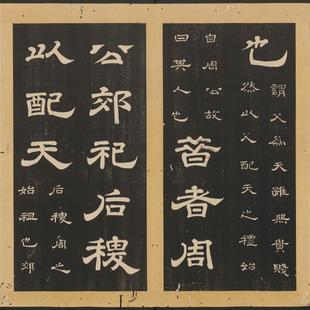 也
謂父為天雖無貴賤
然以父配天之禮始
自周公故
曰其人也
昔者周
公郊祀后稷
以配天
后稷周之
始祖也郊